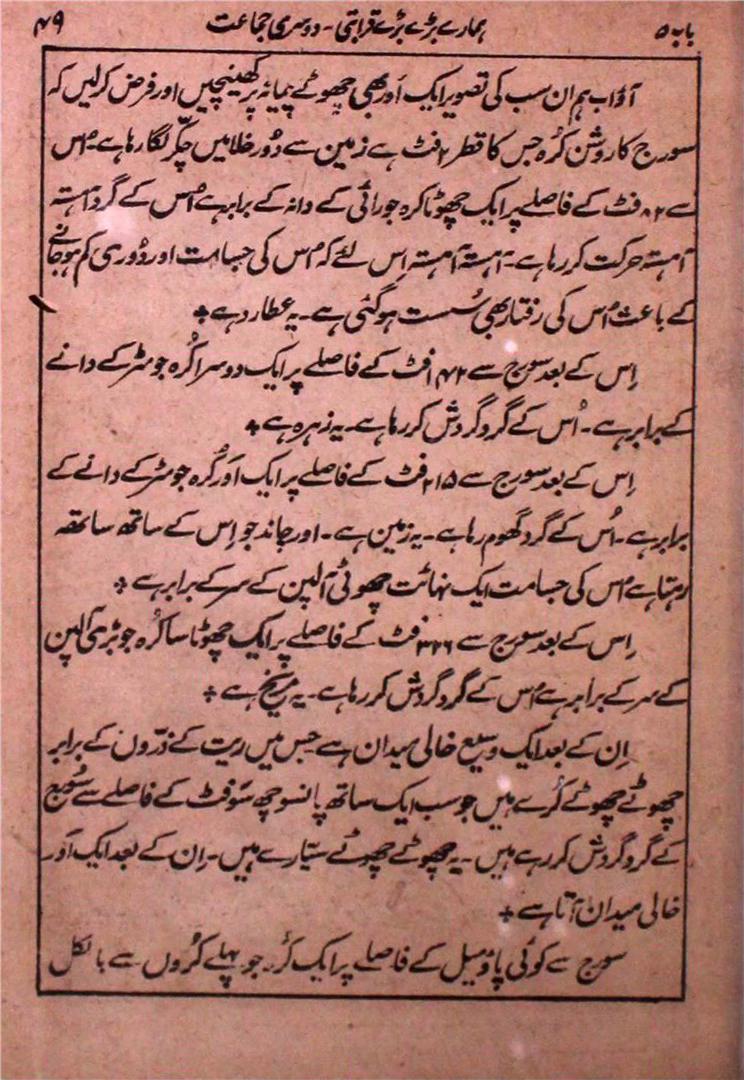 باب ۵ ہمارے بڑے بڑے قرابتی۔ دوسری جماعت ۴۹
آؤ اب ہم ان سب کی تصویر ایک اَور بھی چھوٹے پیمانہ پر کھینچیں اور فرض کر لیں کہ
سورج کا روشن کُرہ جس کا قطر ۲ فٹ ہے زمین سے دُور خلا میں چکّر لگا رہا ہے۔ اُس
سے ۸۲ فٹ کے فاصلے پر ایک چھوٹا کرہ جو رائی کے دانہ کے برابر ہے اُس کے گرد آہستہ
آہستہ حرکت کر رہا ہے۔ آہستہ آہستہ اِس لئے کہ اُس کی جسامت اور دُوری کم ہو جانے
کے باعث اُس کی رفتار بھی سُست ہو گئی ہے۔ یہ عطارد ہے ٭
اِس کے بعد سورج سے ۱۴۲ فٹ کے فاصلے پر ایک دوسرا کُرہ جو مٹر کے دانے
کے برابر ہے۔ اُس کے گرد گردش کر رہا ہے۔ یہ زہرہ ہے ٭
اِس کے بعد سورج سے ۲۱۵ فٹ کے فاصلے پر ایک اَور کُرہ جو مٹر کے دانے کے
برابر ہے۔ اُس کے گرد گھوم رہا ہے۔ یہ زمین ہے۔ اور چاند جو اِس کے ساتھ ساتھ
رہتا ہے اُس کی جسامت ایک نہائت چھوٹی آلپن کے سر کے برابر ہے ٭
اِس کے بعد سورج سے ۳۲۶ فٹ کے فاصلے پر ایک چھوٹا سا کُرہ جو بڑی آلپن
کے سر کے برابر ہے اُس کے گرد گردش کر رہا ہے۔ یہ مریخ ہے ٭
اِن کے بعد ایک وسیع خالی میدان ہے جس میں ریت کے ذرّوں کے برابر
چھوٹے چھوٹے کُرے ہیں جو سب ایک ساتھ پانسو چھ سَو فٹ کے فاصلے سے سُورج
کے گرد گردش کر رہے ہیں۔ یہ چھوٹے چھوٹے سیّارے ہیں۔ اِن کے بعد ایک اَور
خالی میدان آتا ہے ٭
سورج سے کوئی پاؤ میل کے فاصلے پر ایک کُرہ جو پہلے کُروں سے بالکل